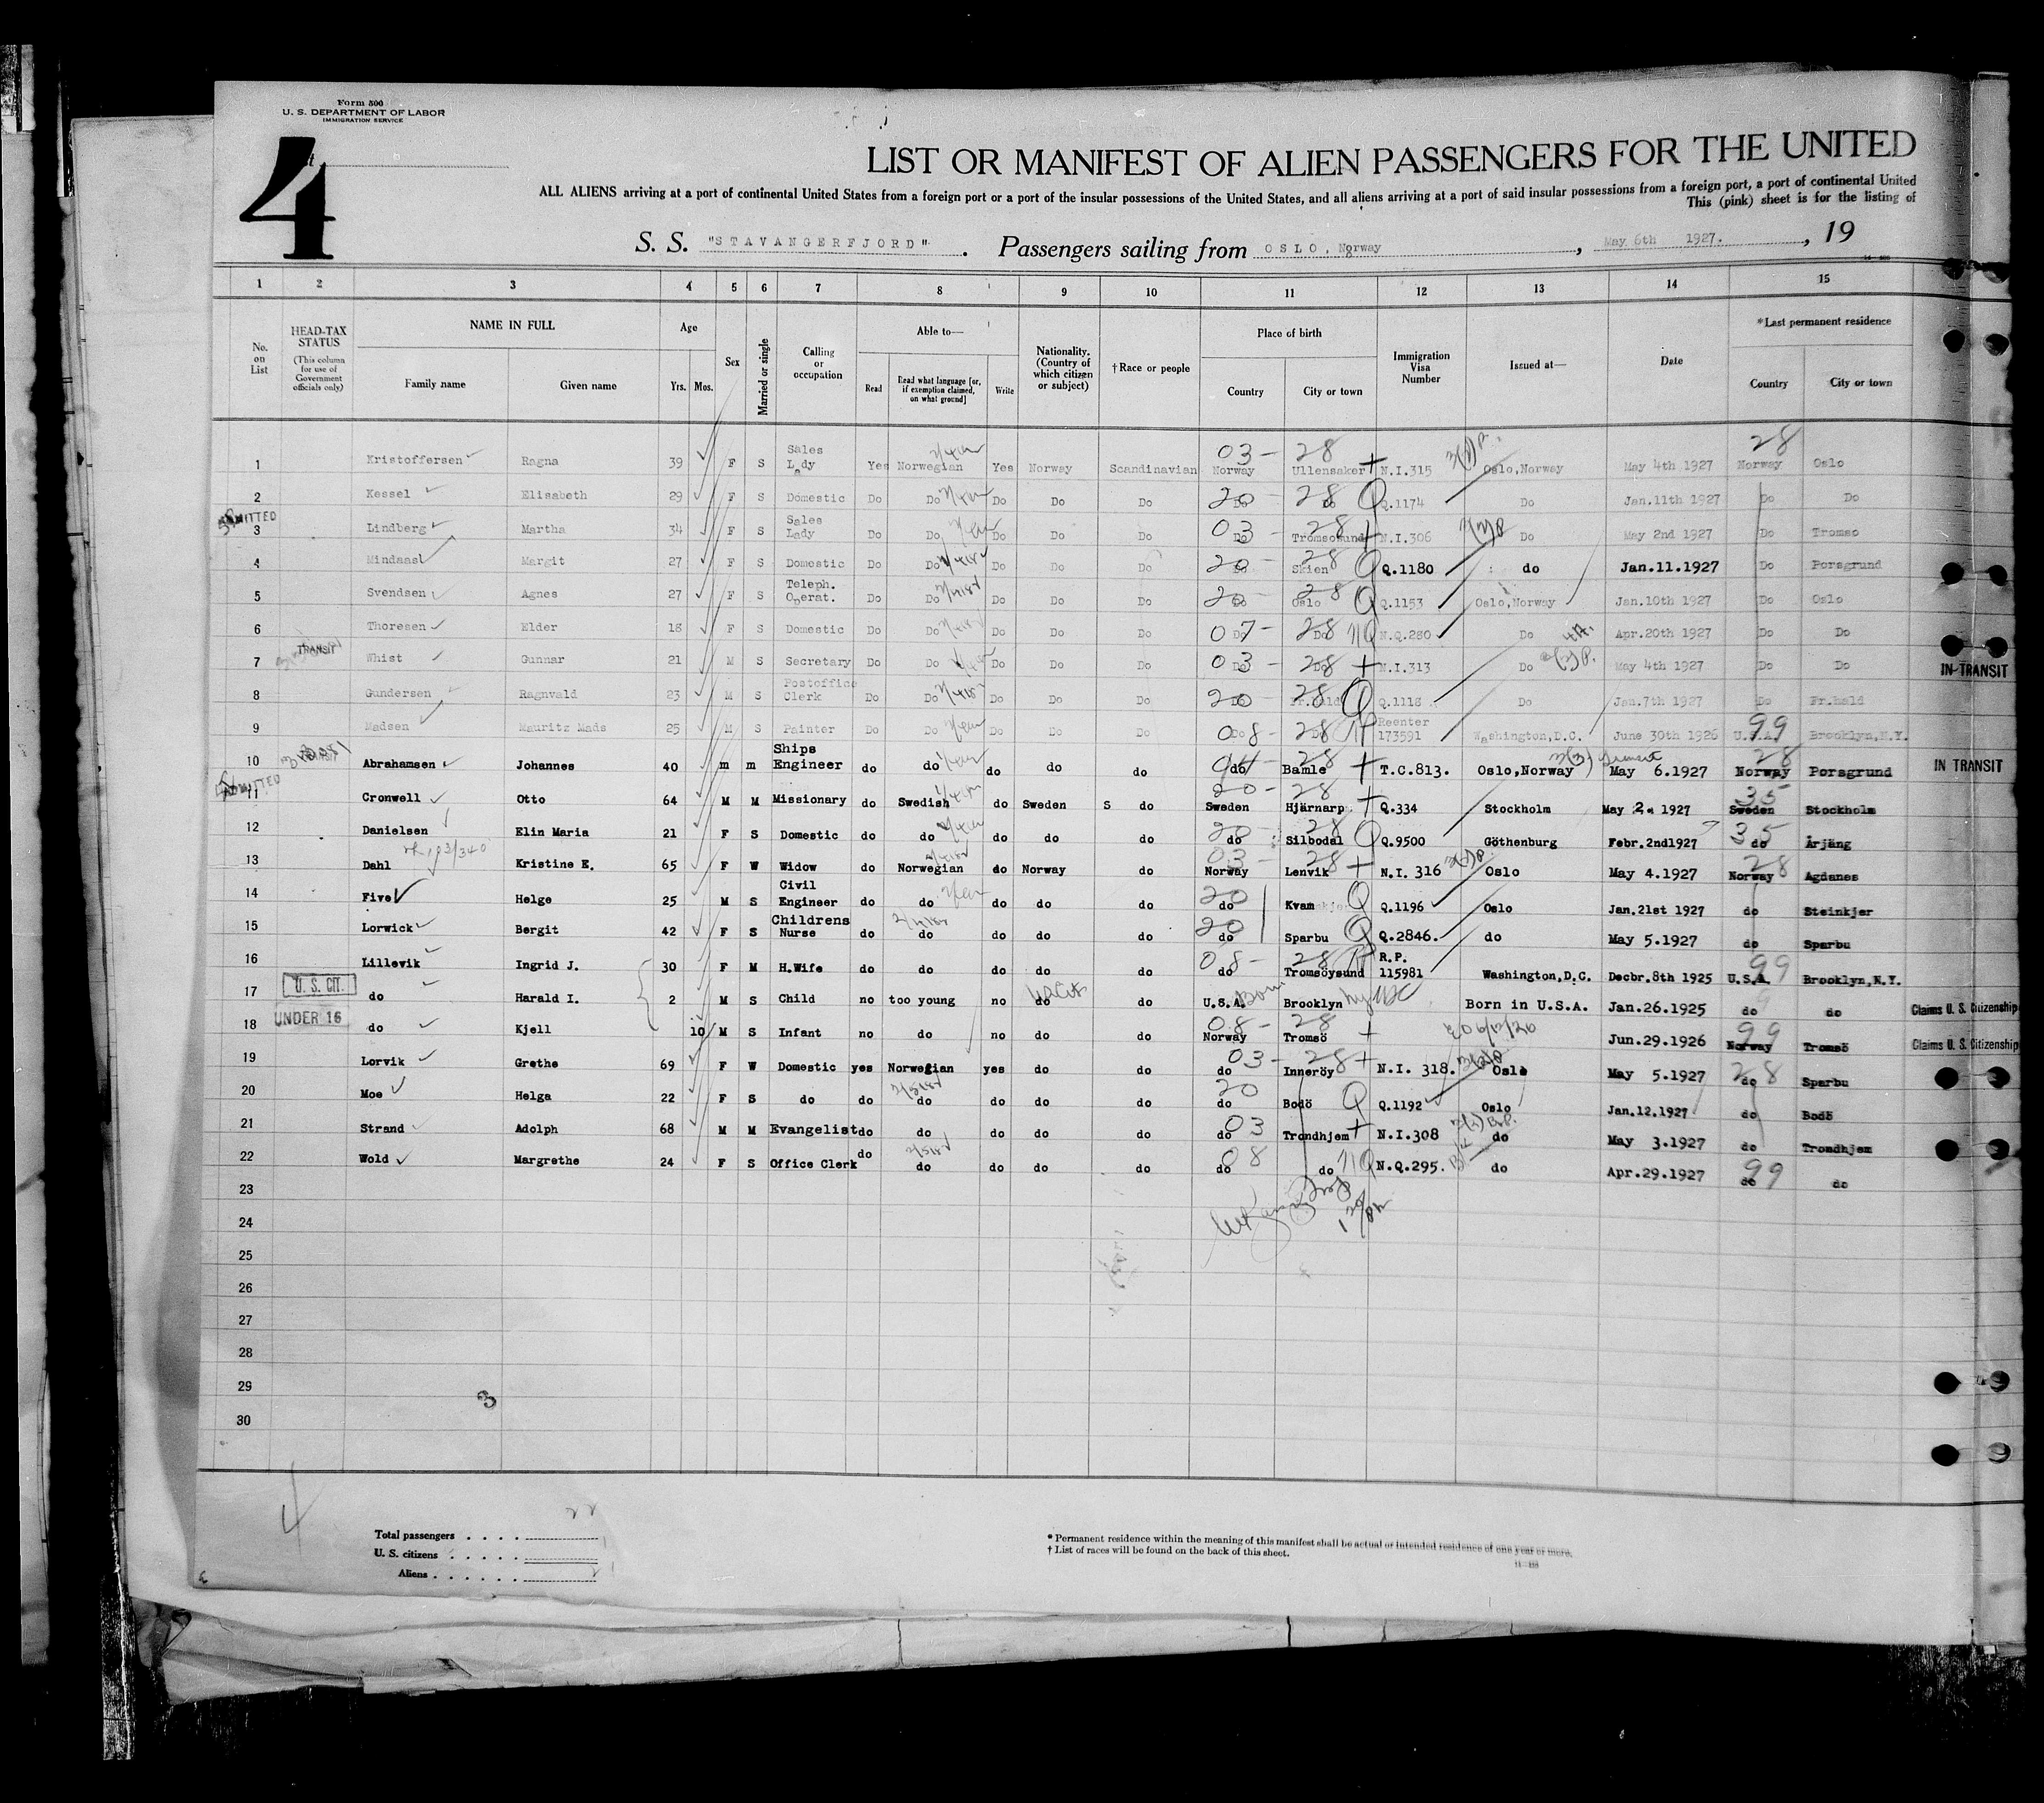 Form 500
U. S. DEPARTMENT OF LABOR
IMMIGRATION SERVICE
4
LIST OR MANIFEST OF ALIEN PASSENGERS FOR THE UNITED
ALL ALIENS arriving at a port of continental United States from a foreign port or a port of the insular possessions of the United States, and all aliens arriving at a port of said insular possessions from a foreign port, a port of continental United
This (pink) sheet is for the listing of
S. S. "STAVANGERFJORD". Passengers sailing from OSLO, Norway, May 6th 1927., 19
1 2 3 4 5 6 7 8 9 10 11 12 13 14 15
No. on List HEAD-TAX STATUS (This column for use of Government officials only) NAME IN FULL Family name Given name Age Yrs. Mos. Sex Married or single Calling or occupation Able to— Read Read what language [or, if exemption claimed, on what ground] Write Nationality. (Country of which citizen or subject) †Race or people Place of birth Country City or town Immigration Visa Number Issued at— Date *Last permanent residence Country City or town
1 Kristoffersen Ragna 39 F S Sales Lady Yes Norwegian Yes Norway Scandinavian 03- 28 Norway Ullensaker N.I.315 Oslo,Norway May 4th 1927 28 Norway Oslo
2 Kessel Elisabeth 29 F S Domestic Do Do Do Do Do 20 28 Do Q Q.1174 Do Jan.11th 1927 Do Do
ADMITTED
3 Lindberg Martha 34 F S Sales Lady Do Do Do Do Do 03 28 Do Tromsosund N.I.306 Do May 2nd 1927 Do Tromso
4 Mindaasl Margit 27 F S Domestic Do Do Do Do Do 20 28 Do Skien Q Q.1180 do Jan.11.1927 Do Porsgrund
5 Svendsen Agnes 27 F S Teleph. Operat. Do Do Do Do Do 20 28 Do Oslo Q Q.1153 Oslo,Norway Jan.10th 1927 Do Oslo
6 Thoresen Elder 18 F S Domestic Do Do Do Do Do 07- 28 Do Do N.Q.280 Do Apr.20th 1927 Do Do
TRANSIT
7 Whist Gunnar 21 M S Secretary Do Do Do Do Do 03 28 Do Do N.I.313 Do May 4th 1927 Do Do IN TRANSIT
8 Gundersen Ragnvald 23 M S Postoffice Clerk Do Do Do Do Do 20 28 Do Q Q.1118 Do Jan.7th 1927 Do Fr.hald
9 Madsen Mauritz Mads 25 M S Painter Do Do Do Do Do 08- 28 Do Do Reenter 173591 Washington,D.C. June 30th 1926 99 U.S.A. Brooklyn,N.Y.
10 Abrahamsen Johannes 40 m m Ships Engineer do do do do do 28 do Bamle T.C.813. Oslo,Norway May 6.1927 28 Norway Porsgrund IN TRANSIT
ADMITTED
11 Cronwell Otto 64 M M Missionary do Swedish do Sweden S do 20- 28 Sweden Hjärnarp Q.334 Stockholm May 2. 1927 35 Sweden Stockholm
12 Danielsen Elin Maria 21 F S Domestic do do do do do 20 28 do Silbodal Q Q.9500 Göthenburg Febr.2nd1927 35 do Årjäng
13 Dahl Kristine E. 65 F W Widow do Norwegian do Norway do 03- 28 Norway Lenvik N.I. 316 Oslo May 4.1927 28 Norway Agdanes
14 Five Helge 25 M S Civil Engineer do do do do do 20 do Kvam Q Q.1196 Oslo Jan.21st 1927 do Steinkjer
15 Lorwick Bergit 42 F S Childrens Nurse do do do do do 20 do Sparbu Q Q.2846. do May 5.1927 do Sparbu
16 Lillevik Ingrid J. 30 F M H.Wife do do do do do 08- 28 do Tromsöysund R.P. 115981 Washington,D.C. Decbr.8th 1925 99 U.S.A. Brooklyn,N.Y.
U. S. CIT.
17 do Harald I. 2 M S Child no too young no do do U.S.A. Born Brooklyn Born in U.S.A. Jan.26.1925 do do Claims U. S. Citizenship
UNDER 16
18 do Kjell 10 M S Infant no do no do do 08- 28 Norway Tromsö Jun.29.1926 99 Norway Tromsö Claims U. S. Citizenship
19 Lorvik Grethe 69 F W Domestic yes Norwegian yes do do 03- 28 do Inneröy N.I. 318. Oslo May 5.1927 28 do Sparbu
20 Moe Helga 22 F S do do do do do do 20 do Bodö Q Q.1192 Oslo Jan.12.1927 do Bodö
21 Strand Adolph 68 M M Evangelist do do do do do 03 do Trondhjem N.I.308 do May 3.1927 do Trondhjem
22 Wold Margrethe 24 F S Office Clerk do do do do do 08 do do N.Q.295. do Apr.29.1927 99 do do
23
24
25
26
27
28
29
30
3
4
Total passengers . . . . 22
U. S. citizens . . . . .
Aliens . . . . . .
* Permanent residence within the meaning of this manifest shall be actual or intended residence of one year or more.
† List of races will be found on the back of this sheet.